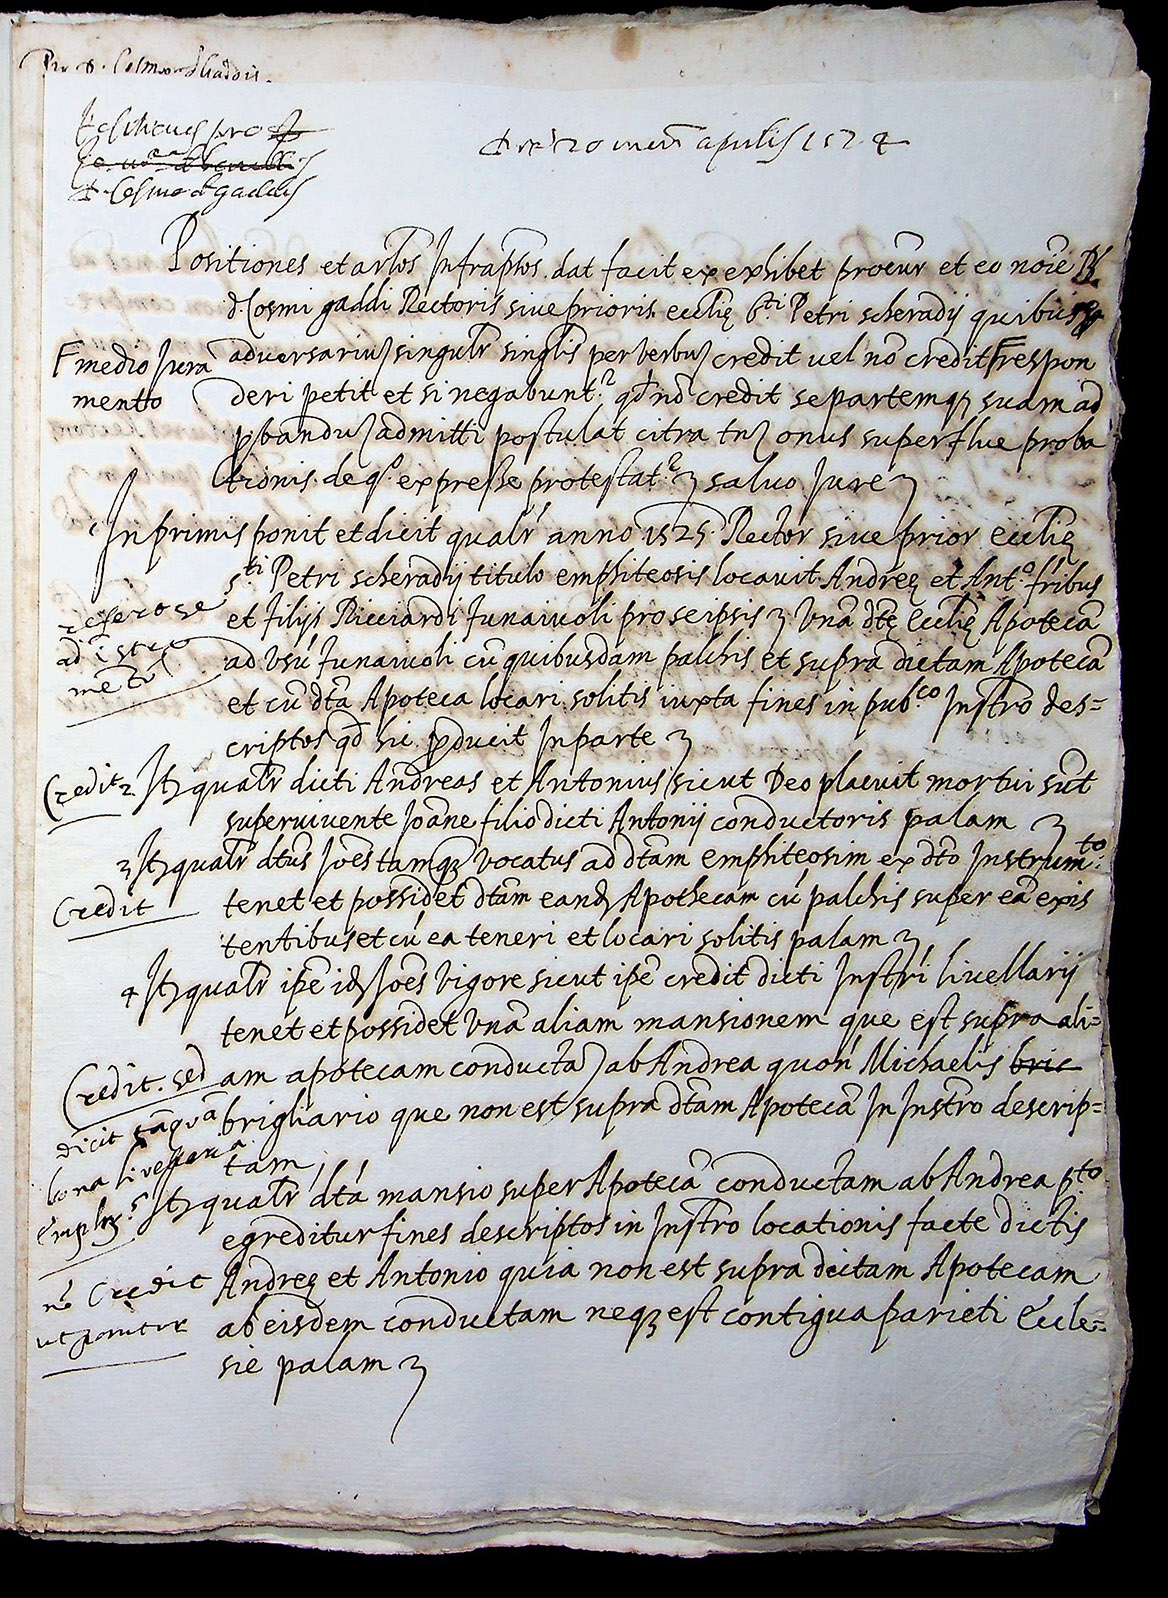 Cosmo Gaddi
pro
D. Cosmo de gaddis
Die 20 apprilis 1574
Positiones et artlos Infraptos dat facit ex exhibet procur et eo noie
d. Cosmi gaddi Rectoris sive prioris ecclie s.ti Petri scheradij quibus
adversariuz singulr singlis per verbuz credit vel no credit respon
F medio Jura
mentto
deri petit et si negabunt.r qd no credit se partemqz suam ad
pbanduz admitti postulat citra tn onus superflue proba
tionis de qo expresse protestat.r salvo Jure
In primis ponit et dicit qualr anno 1525 Rector sive prior ecclie
s.ti Petri scheradij titulo emphiteosis locavit Andree et Ant.o fribus
et filijs Ricciardi funaivoli pro seipsis Una dte Ecclie Apoteca
refert se
ad istru
metu
ad Usu funaivoli cu quibusdam palchis et supra dictam Apoteca
et cu dta Apoteca locari solitis iuxta fines in pub.co Instro des=
criptos qd sic pducit In parte
Credit 2 Itz qualr dicti Andreas et Antonius sicut Deo placuit mortui sut
supervivente Joane filio dicti Antonij conductoris palam
3 Itz qualr dtus Joes tamqz vocatus ad dtam emphiteosim ex dto Instrum.to
Credit
tenet et possidet dtam eandz Apothecam cu palchis super ea exis
tentibus et cu ea teneri et locari solitis palam
4 Itz qualr ipe idz Joes vigore sicut ipe credit dicti Instri livellarij
tenet et possidet Una aliam mansionem que est supra ali=
Credit. sed
am apotecam conducta ab Andrea quon Michaelis bric
dicit taqua
brigliario que non est supra dtam Apoteca In Instro descrip=
bona livellaria
tam
5 Itz qualr dta mansio super Apoteca conductam ab Andrea p.to
egreditur fines descriptos in Instro locationis facte dictis
no Credit
Andree et Antonio quia non est supra dictam Apotecam
ut ponitur
ab eisdem conductam neqz est contigua parieti Eccle=
sie palam